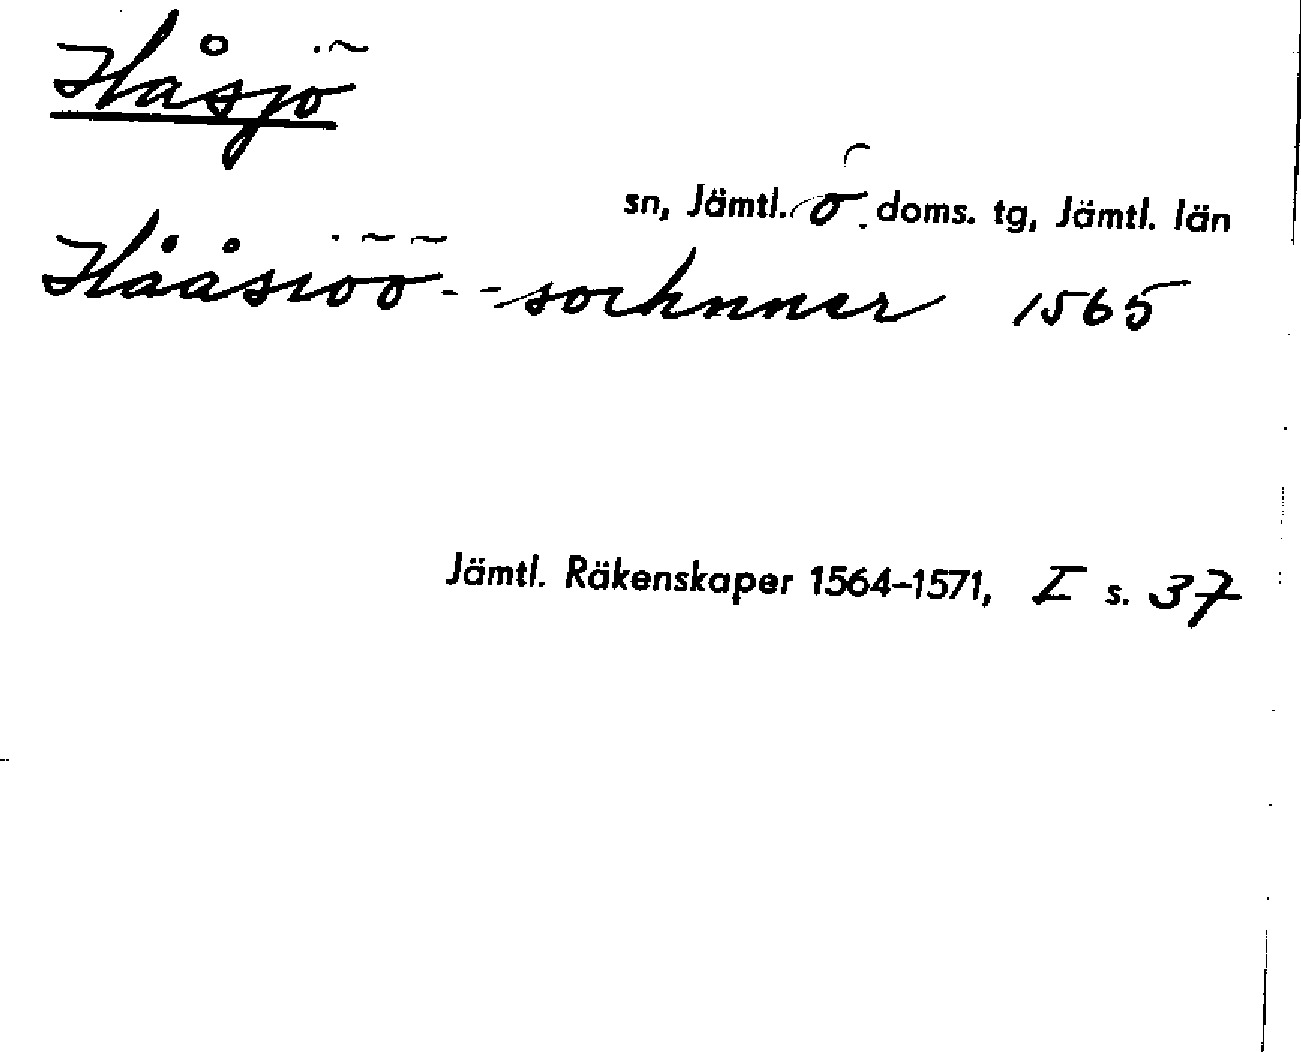 Håsjö
sn, Jämtl. ö. doms. tg, Jämtl. län
Hååsiöö - - sochnner 1565
Jämtl. Räkenskaper 1564-1571, I s. 37